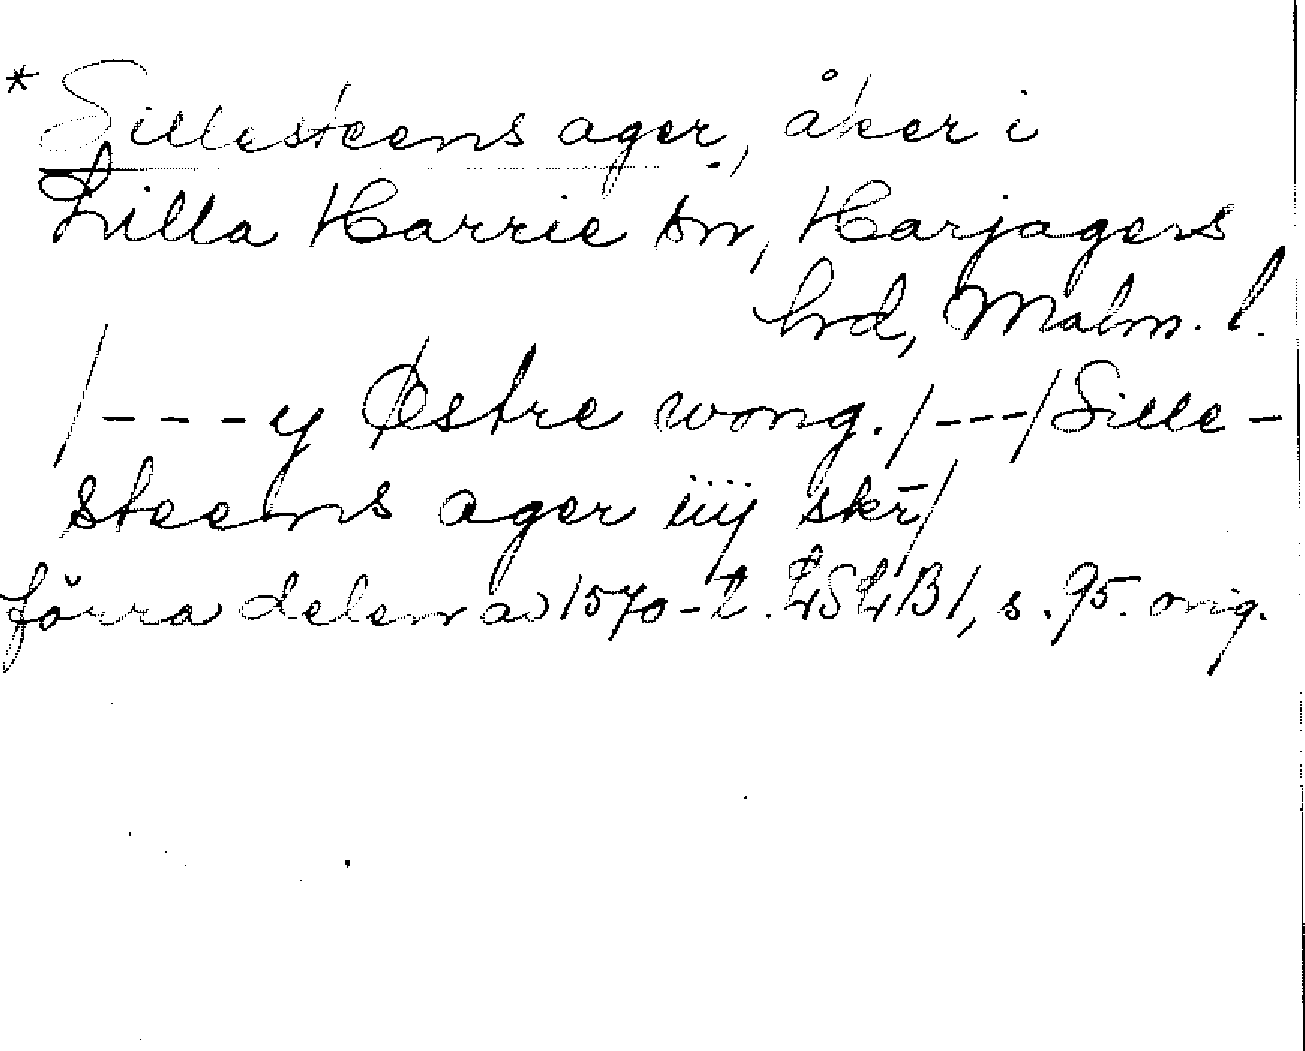 * Sillesteens ager, åker i
Lilla Harrie sn, Harjagers
hrd, Malm. l.
/---y Østre wong./---/Sille-
steens ager iiij skr̄/
förra delen av 1570-t. LSLB1, s. 95. orig.